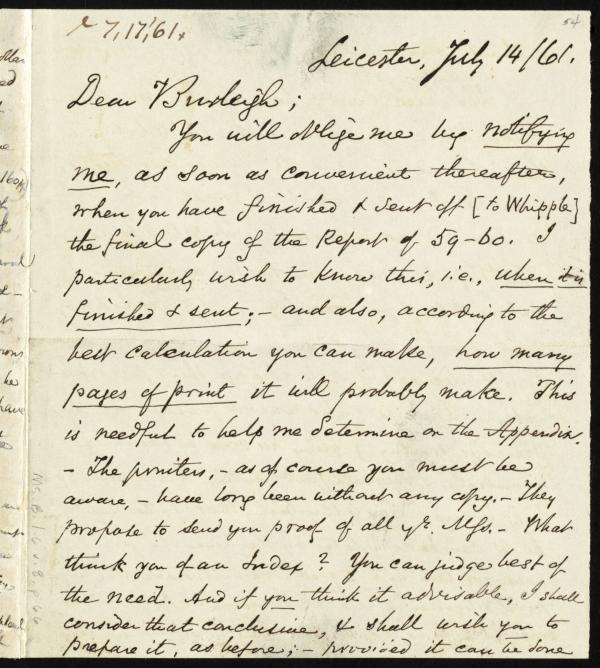 r 7,17,'61.
54
Leicester, July 14/61.
Dear Burleigh;
You will oblige me by notifying
me, as soon as convenient thereafter,
when you have finished & sent off [to Whipple]
the final copy of the Report of 59-60. I
particularly wish to know this, i.e., when it is
finished & sent; - and also, according to the
best calculation you can make, how many
pages of print it will probably make. This
is needful to help me determine on the Appendix.
- The printers, - as of course you must be
aware, - have long been without any copy. - They
propose to send you proof of all yr. MSS. - What
think you of an Index? You can judge best of
the need. And if you think it advisable, I shall
consider that conclusive, & shall wish you to
prepare it, as before; - provided it can be done